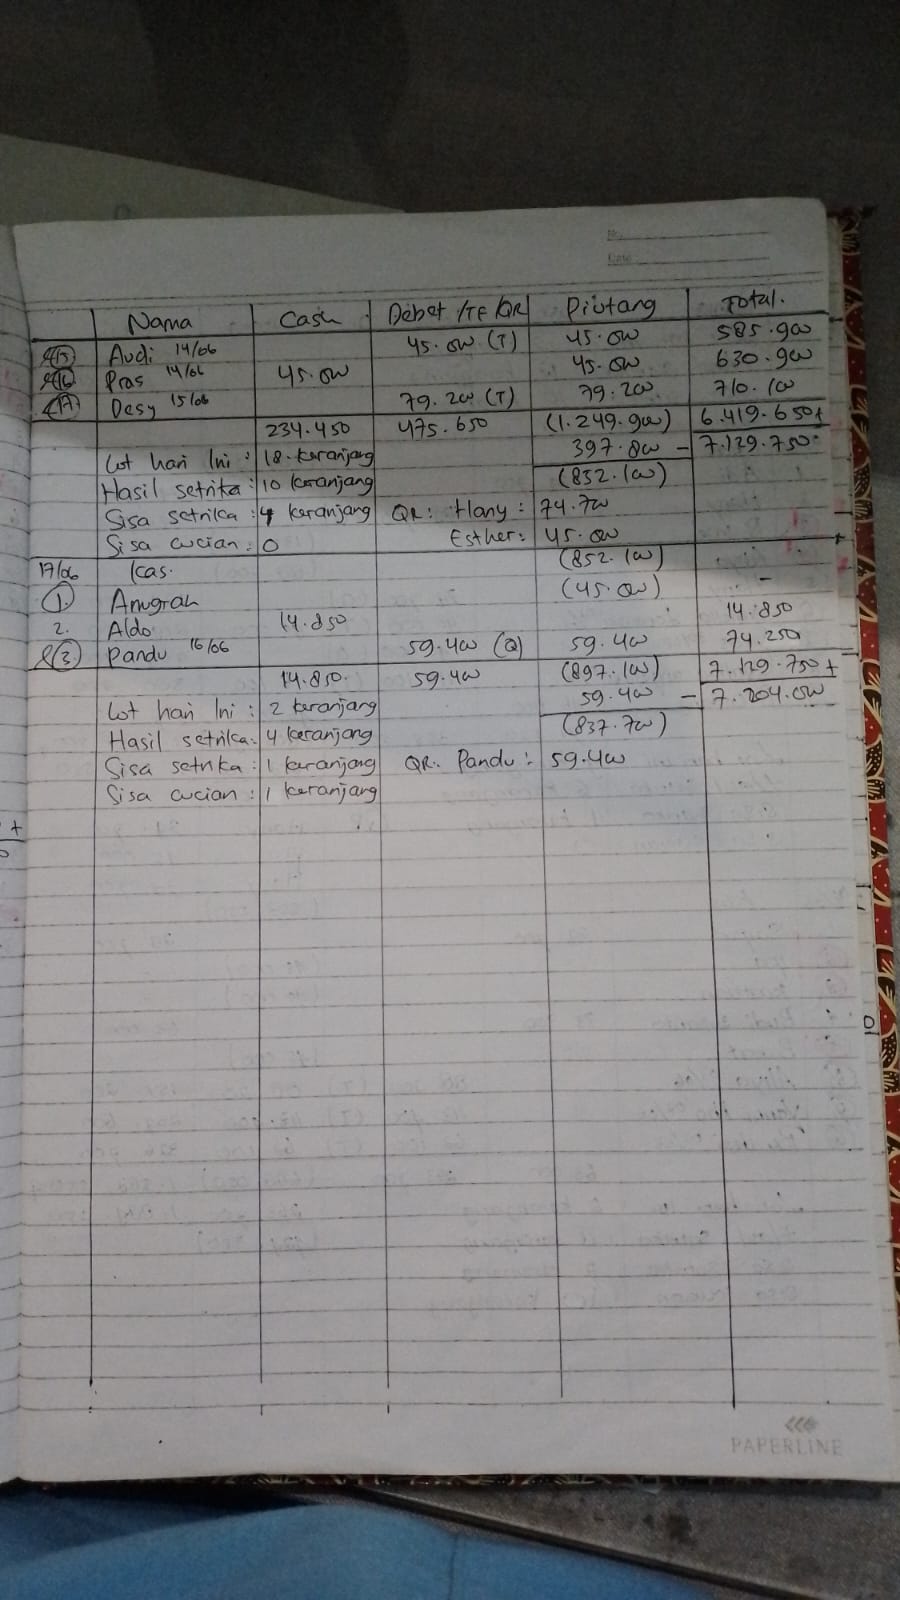 No.
Date
Nama Cash Debet /TF /QR Piutang Total.
15 Audi 14/06 45.000 (T) 45.000 585.900
16 Pras 14/06 45.000 45.000 630.900
17 Desy 15/06 79.200 (T) 79.200 710.100
234.450 475.650 (1.249.900) 6.419.650+
Cot hari Ini : 18 keranjang 397.800 - 7.129.750
Hasil setrika : 10 keranjang (852.100)
Sisa setrika : 4 keranjang QR : Hany : 74.700
Sisa cucian : 0 Esther : 45.000
17/06 Kas. (852.100) -
1. Anugrah (45.000)
2. Aldo 14.850 14.850
3 Pandu 16/06 59.400 (Q) 59.400 74.250
14.850. 59.400 (897.100) 7.129.750+
Cot hari Ini : 2 keranjang 59.400 - 7.204.000
Hasil setrika : 4 keranjang (837.700)
Sisa setrika : 1 keranjang QR. Pandu : 59.400
Sisa cucian : 1 keranjang
PAPERLINE